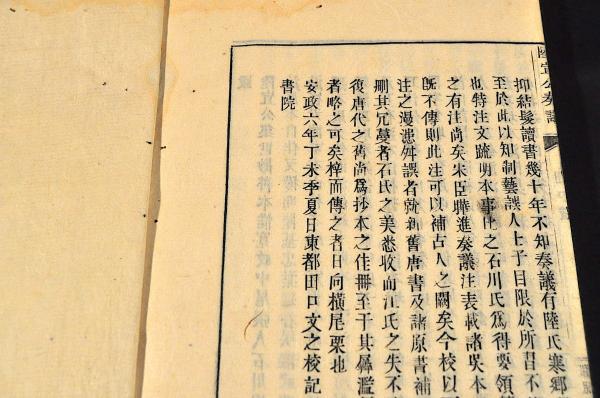 陸宣公奏議
抑結髮讀書幾十年不知奏議有陸氏寒鄉
至於此以知制藝誤人士子目限於所習不
也特注文疏明本事比之石川氏爲得要領
之有注尚矣宋臣曄進奏議注表載諸吳本
旣不傳則此注可以補古人之闕矣今校以
注之漫漶舛誤者就新舊唐書及諸原書補
刪其冗蔓者石氏之美悉收而江氏之失不
復唐代之舊尚爲抄本之佳冊至于其孱濫
者略之可矣梓而傳之者日向橫尾栗也
安政六年丁未季夏日東都田口文之校記
書院